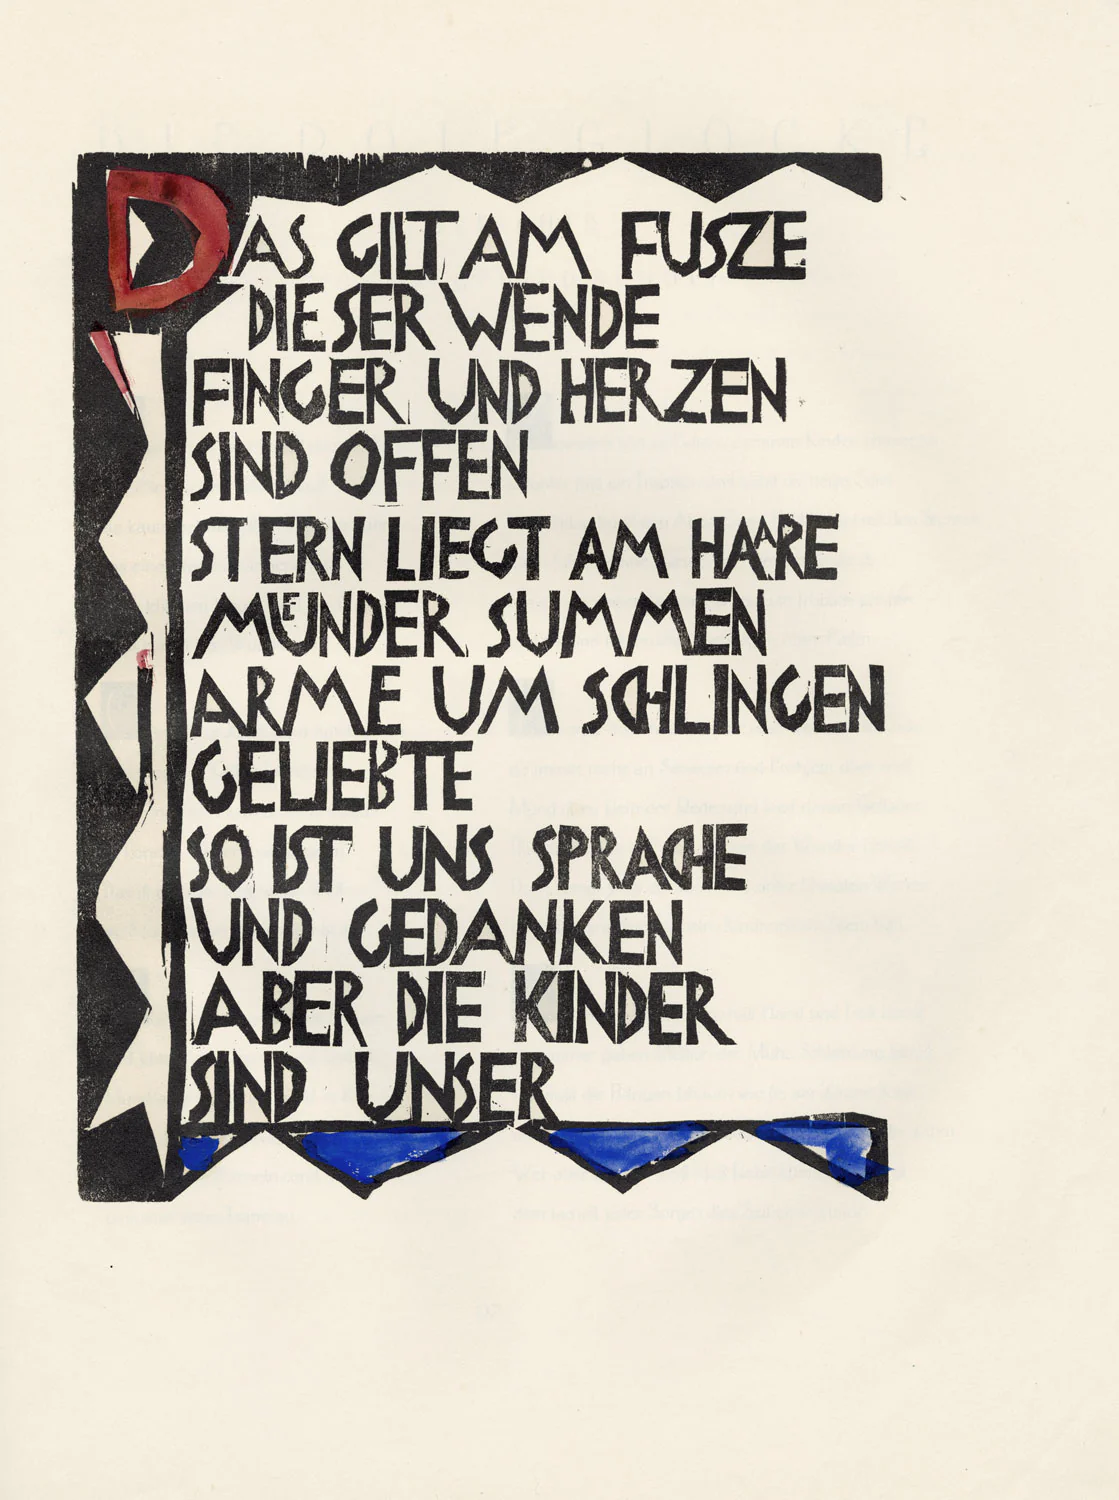 DAS GILT AM FUSZE
DIESER WENDE
FINGER UND HERZEN
SIND OFFEN
STERN LIEGT AM HAARE
MÜNDER SUMMEN
ARME UM SCHLINGEN
GELIEBTE
SO IST UNS SPRACHE
UND GEDANKEN
ABER DIE KINDER
SIND UNSER